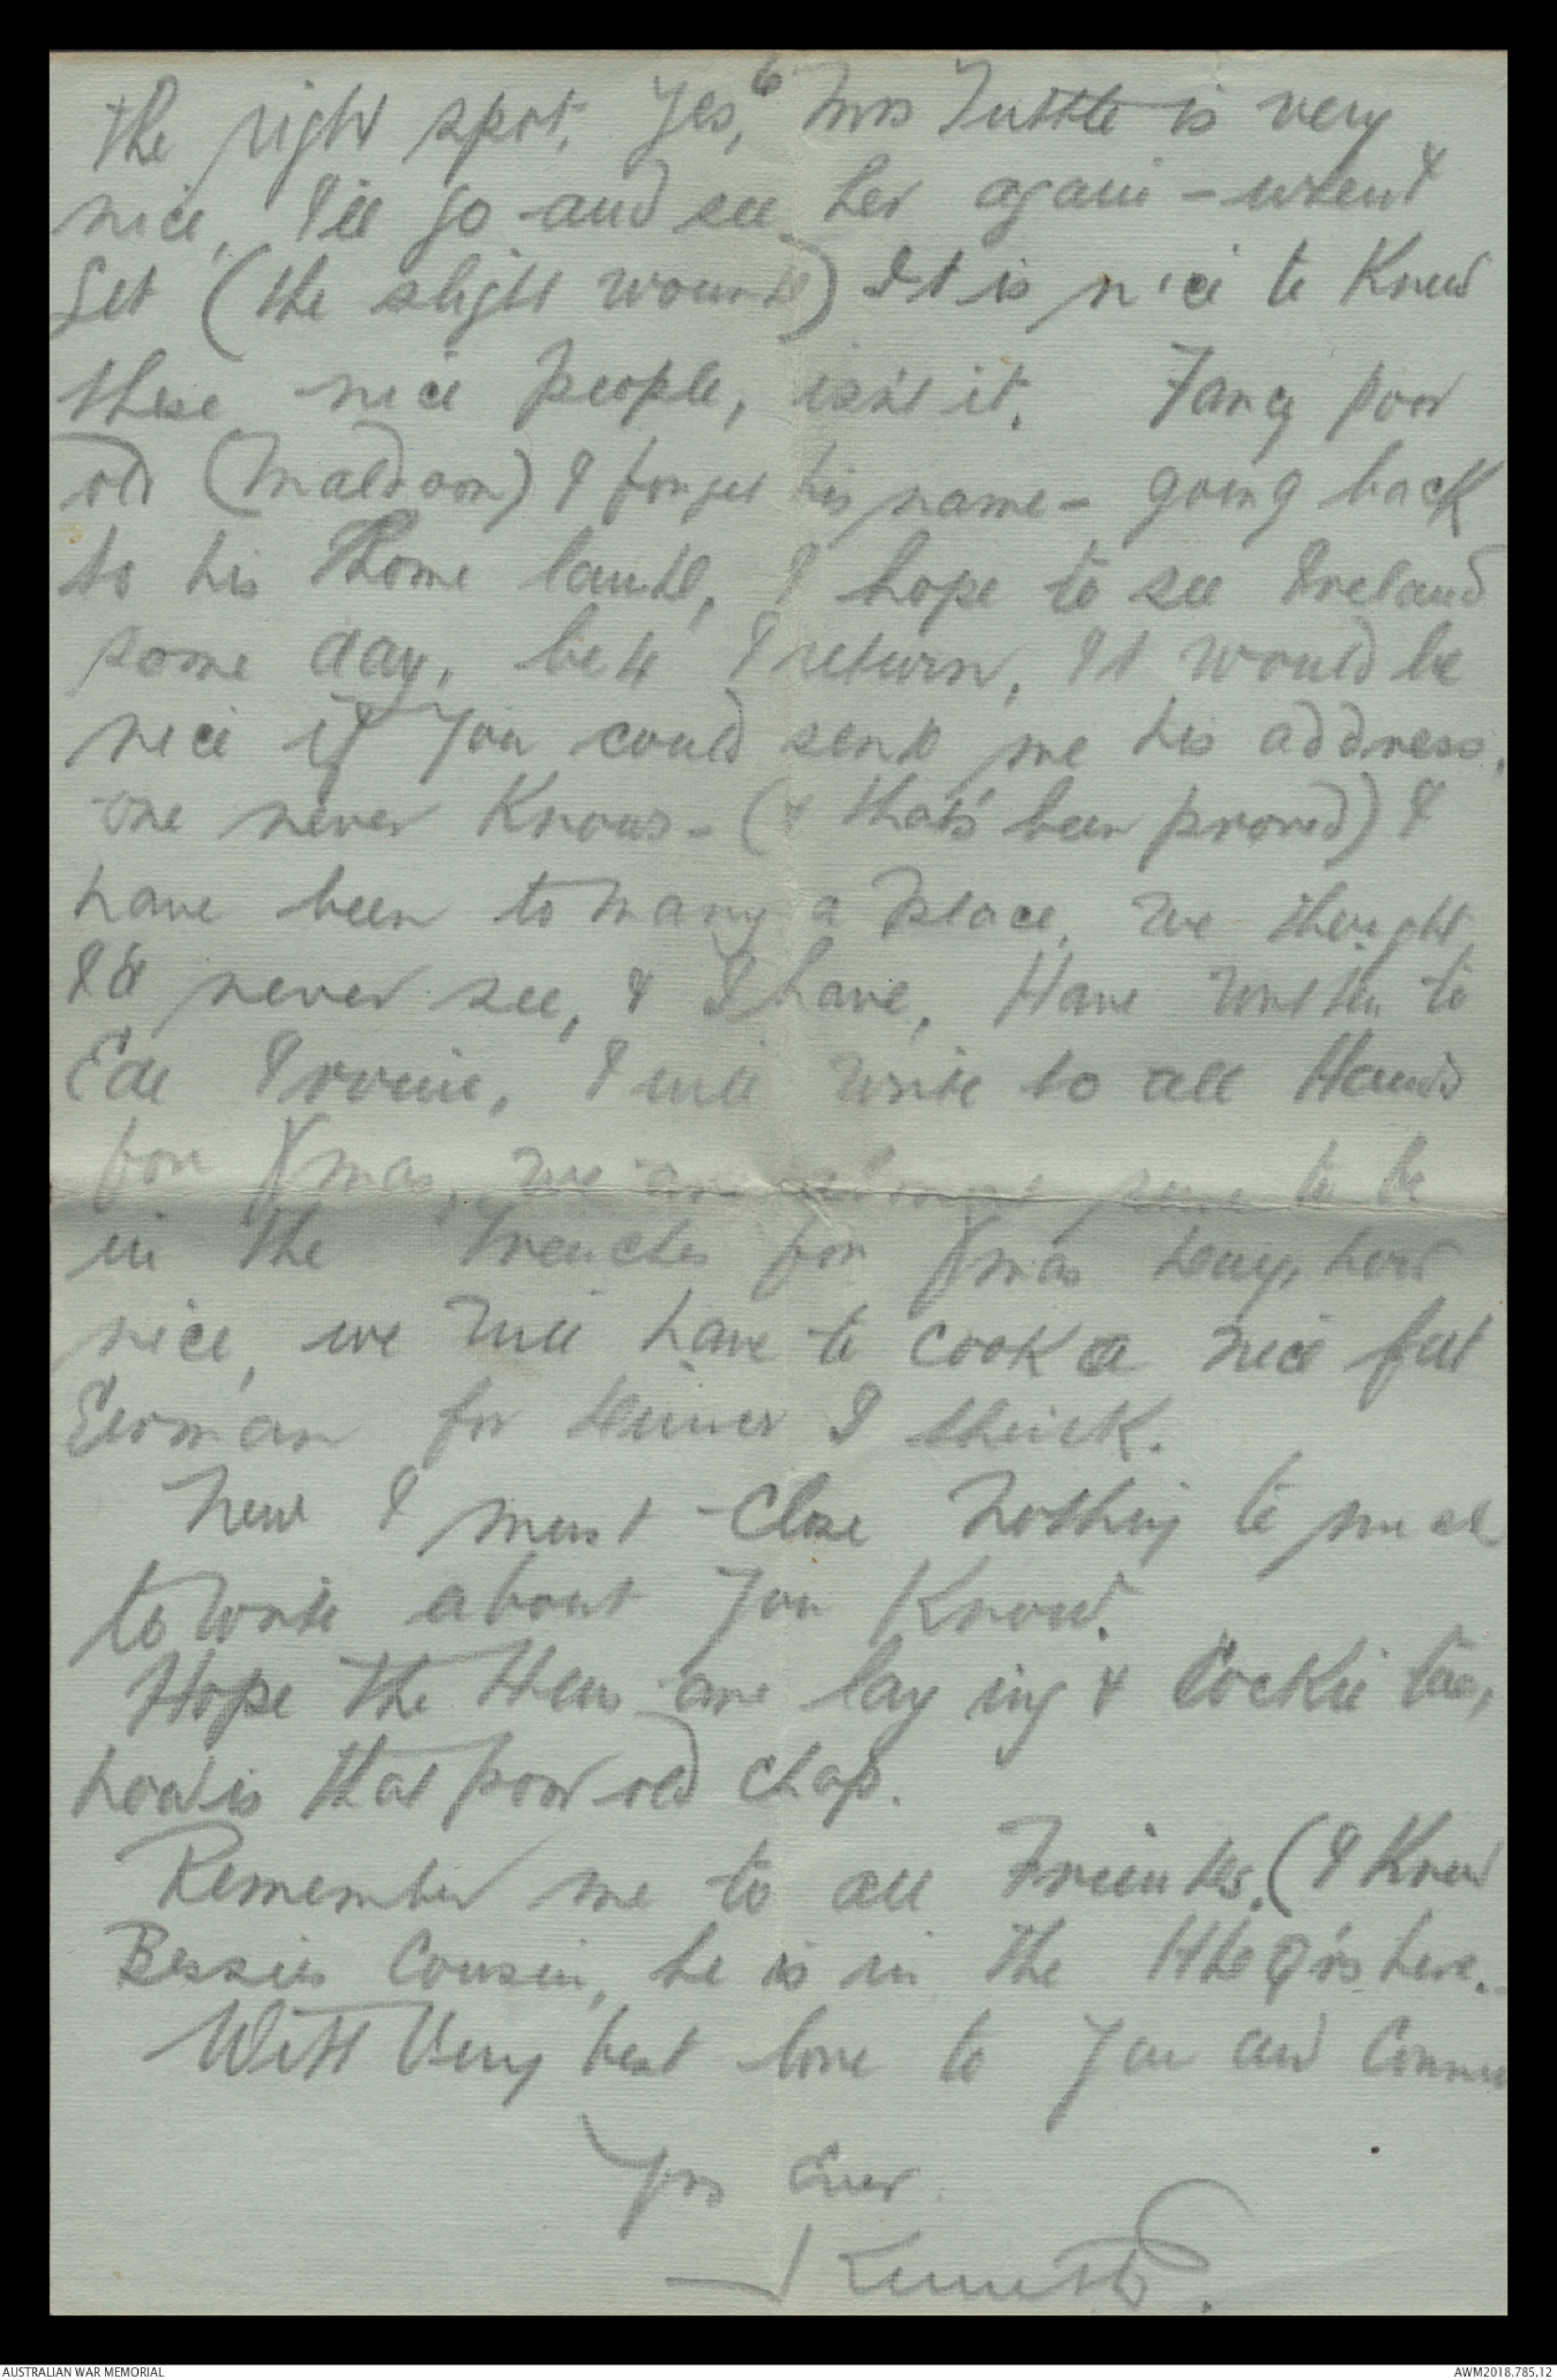 6
the right spot. Yes, Mrs Tuttle is very
nice, I'll go and see her again - when I
get (the slight wound) It is nice to know
these nice people, isn't it. Fancy poor
old (Maldoon) I forget his name - going back
to his Home land, I hope to see Ireland
some day, be4 I return, It would be
nice if you could send me his address,
one never knows - (& that's been proved) I
have been to many a place, we thought
I'd never see, & I have, Have written to
Ede Irvine, I will write to all Hands
for Xmas, we are almost sure to be
in the trenches for Xmas day, how
nice, we will have to cook a nice fat
German for dinner I think.
Now I must close Nothing to much
to write about you know.
Hope the Hens are laying & Cockie too,
how is that poor old chap.
Remember me to all Friends. (I know
Bessies Cousin, he is in the Hd Qrs here.
With Very best love to you and Connie
Yrs Ever.
Kenneth.
AUSTRALIAN WAR MEMORIAL
AWM2018.785.17